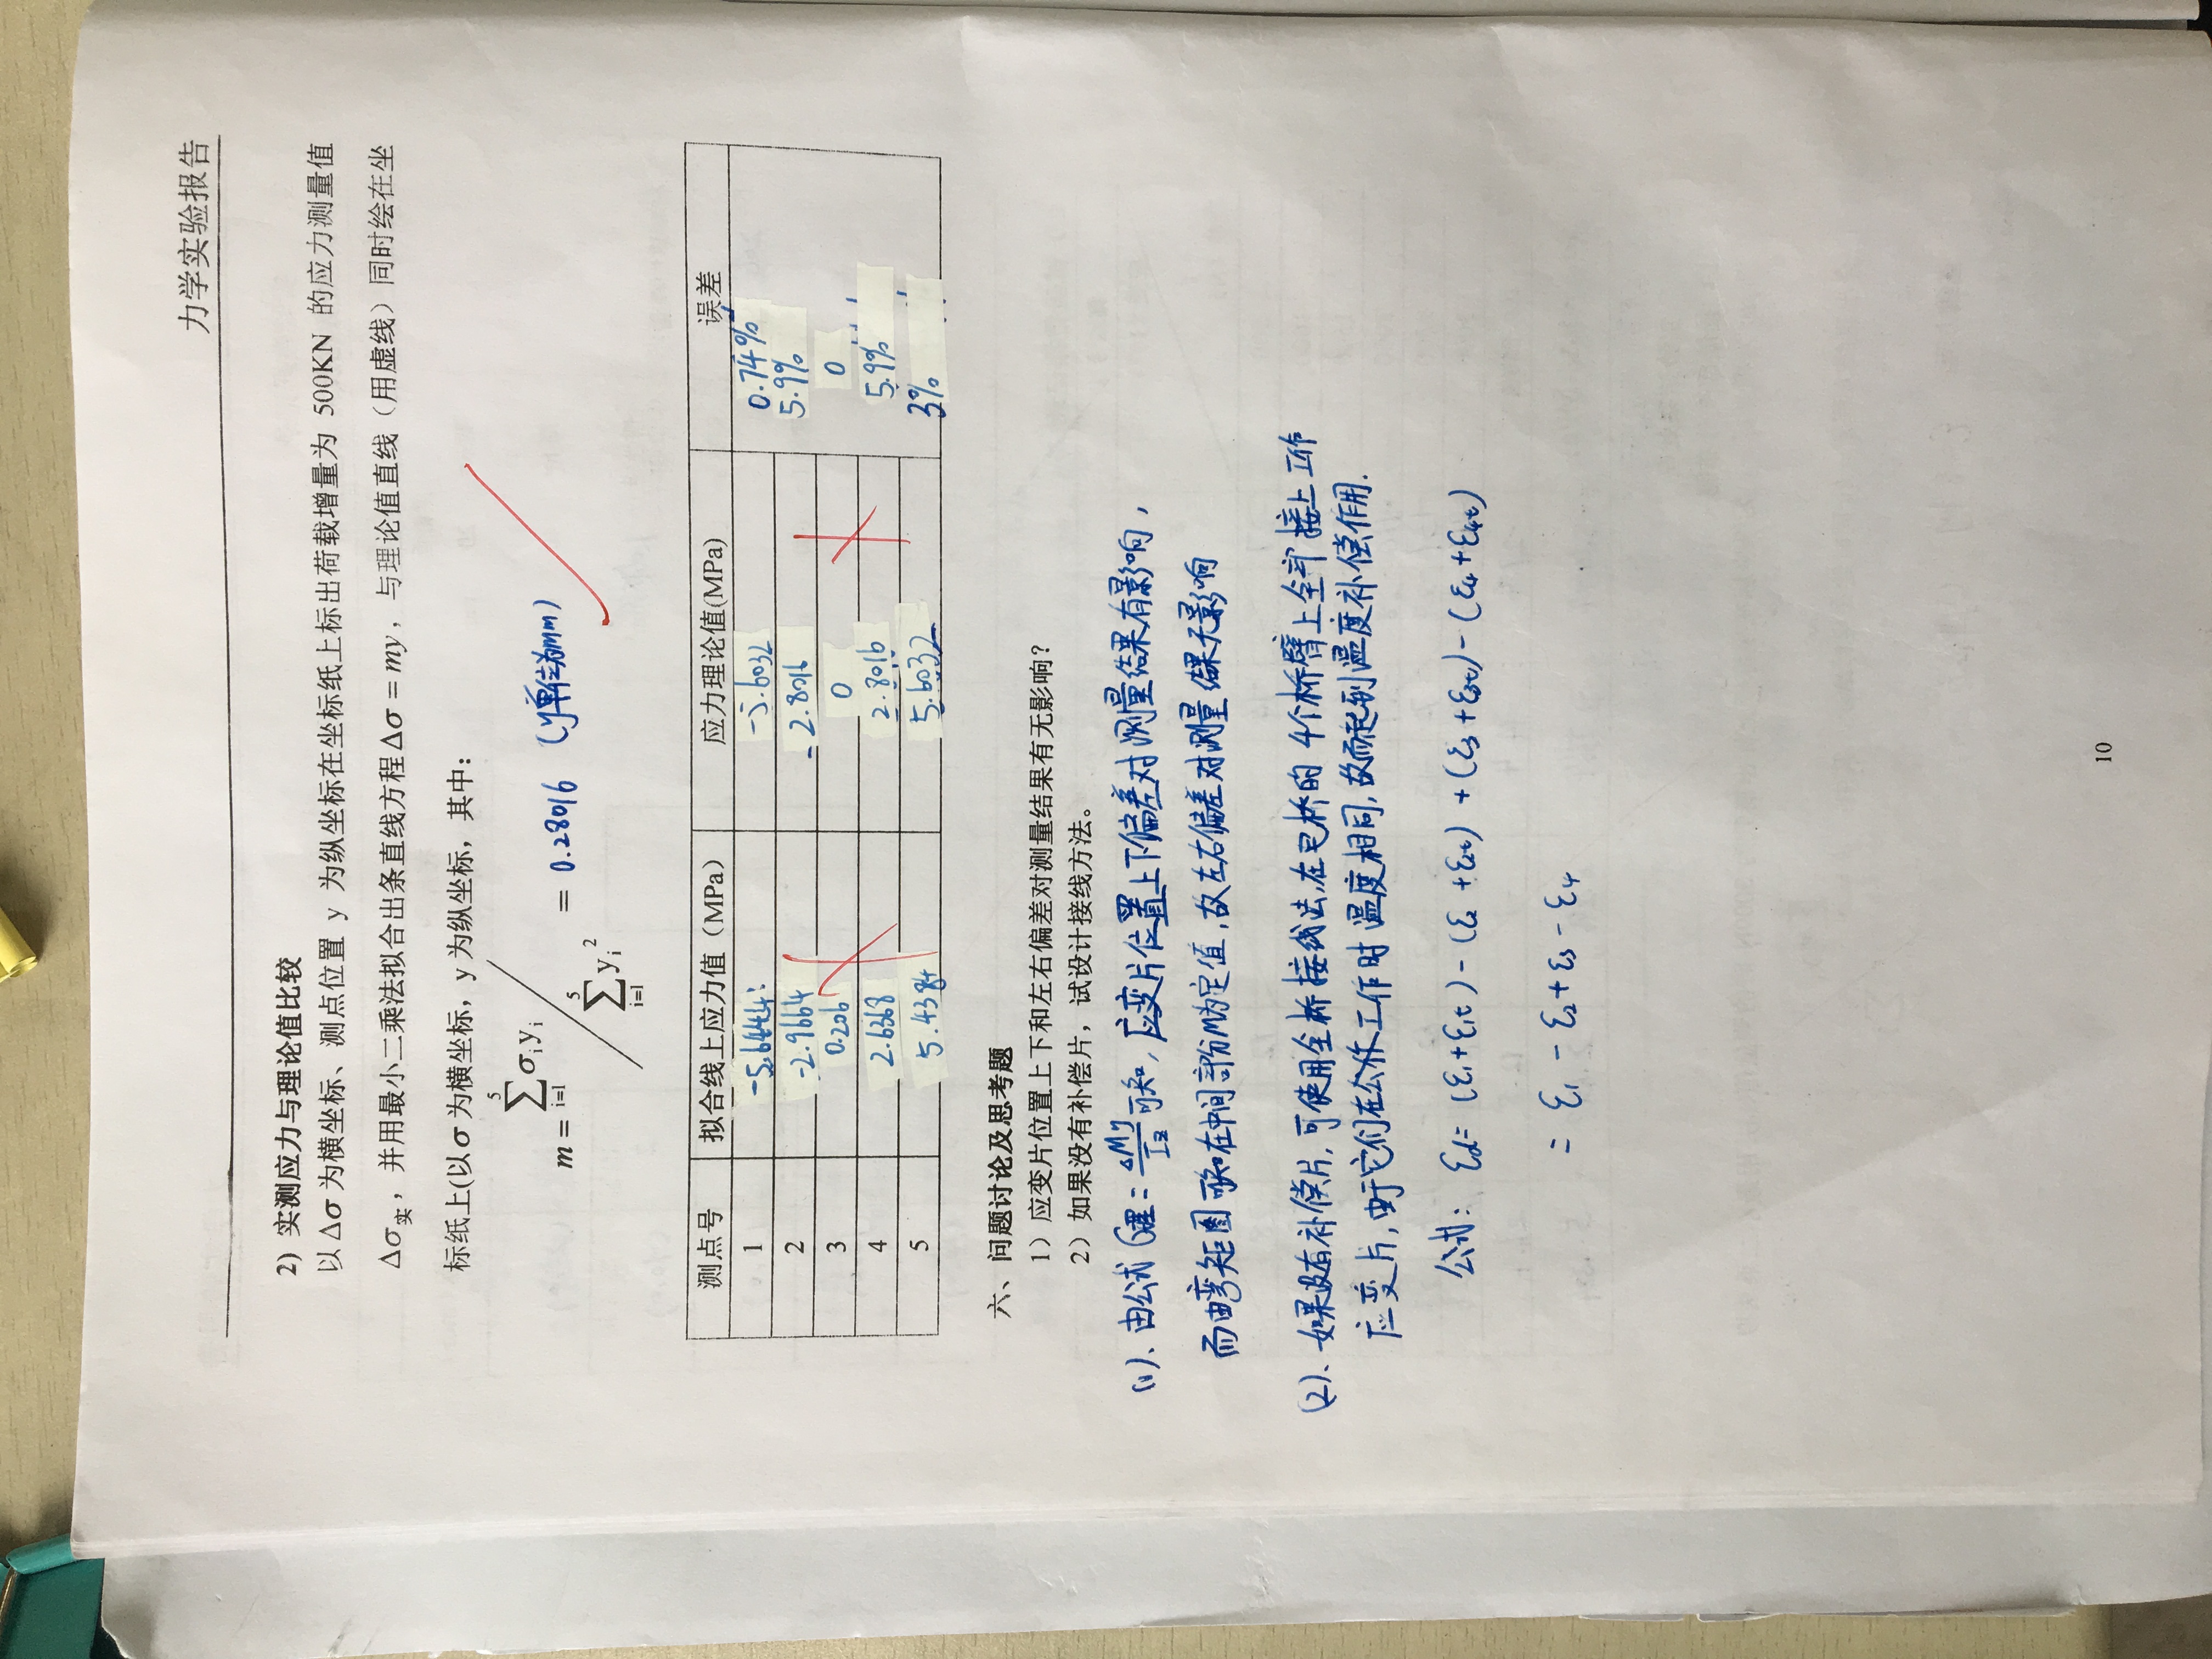 力学实验报告
2) 实测应力与理论值比较
以 Δσ 为横坐标、测点位置 y 为纵坐标在坐标纸上标出荷载增量为 500KN 的应力测量值
Δσ实，并用最小二乘法拟合出条直线方程Δσ = my，与理论值直线（用虚线）同时绘在坐
标纸上(以σ 为横坐标，y 为纵坐标，其中：
m = ∑(i=1→5) σᵢyᵢ / ∑(i=1→5) yᵢ² = 0.28016 (y单位为mm)
测点号 拟合线上应力值（MPa） 应力理论值(MPa) 误差
1 -5.6444 -5.6032 0.74%
2 -2.9664 -2.8016 5.9%
3 0.206 0 0
4 2.6368 2.8016 5.9%
5 5.4384 5.6032 3%
六、问题讨论及思考题
1）应变片位置上下和左右偏差对测量结果有无影响？
2）如果没有补偿片，试设计接线方法。
(1)、由公式 σ理=ΔMy/Iz 可知，应变片位置上下偏差对测量结果有影响，
而由弯矩图可知在中间部分M为定值，故左右偏差对测量结果无影响
(2)、如果没有补偿片，可使用全桥接线法，在电桥的4个桥臂上全部接上工作
应变片，由于它们在工作时温度相同，故而起到温度补偿作用.
公式： εd= (ε₁+ε₁t) - (ε₂+ε₂t) + (ε₃+ε₃t) - (ε₄+ε₄t)
= ε₁ - ε₂+ ε₃ - ε₄
10